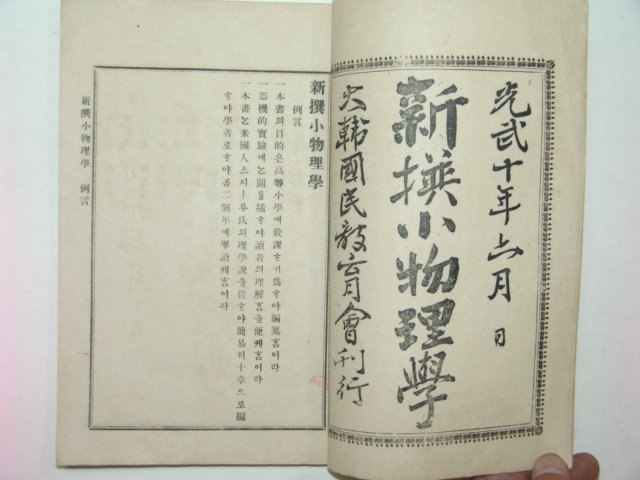 光武十年六月 日
新撰小物理學
大韓國民敎育會刊行
新撰小物理學
例言
一本書의目的은高等小學에敎課ᄒᆞ기爲ᄒᆞ야編纂홈이라
一器機的實驗에ᄂᆞᆫ圖ᄅᆞᆯ揷ᄒᆞ야讀者의理解홈을便케홈이라
一本書ᄂᆞᆫ米國人스지ー루氏의理學說을從ᄒᆞ야簡易히十章으로編
ᄒᆞ야學者로ᄒᆞ야곰二個年에畢讀케홈이라
新撰小物理學 例言
一